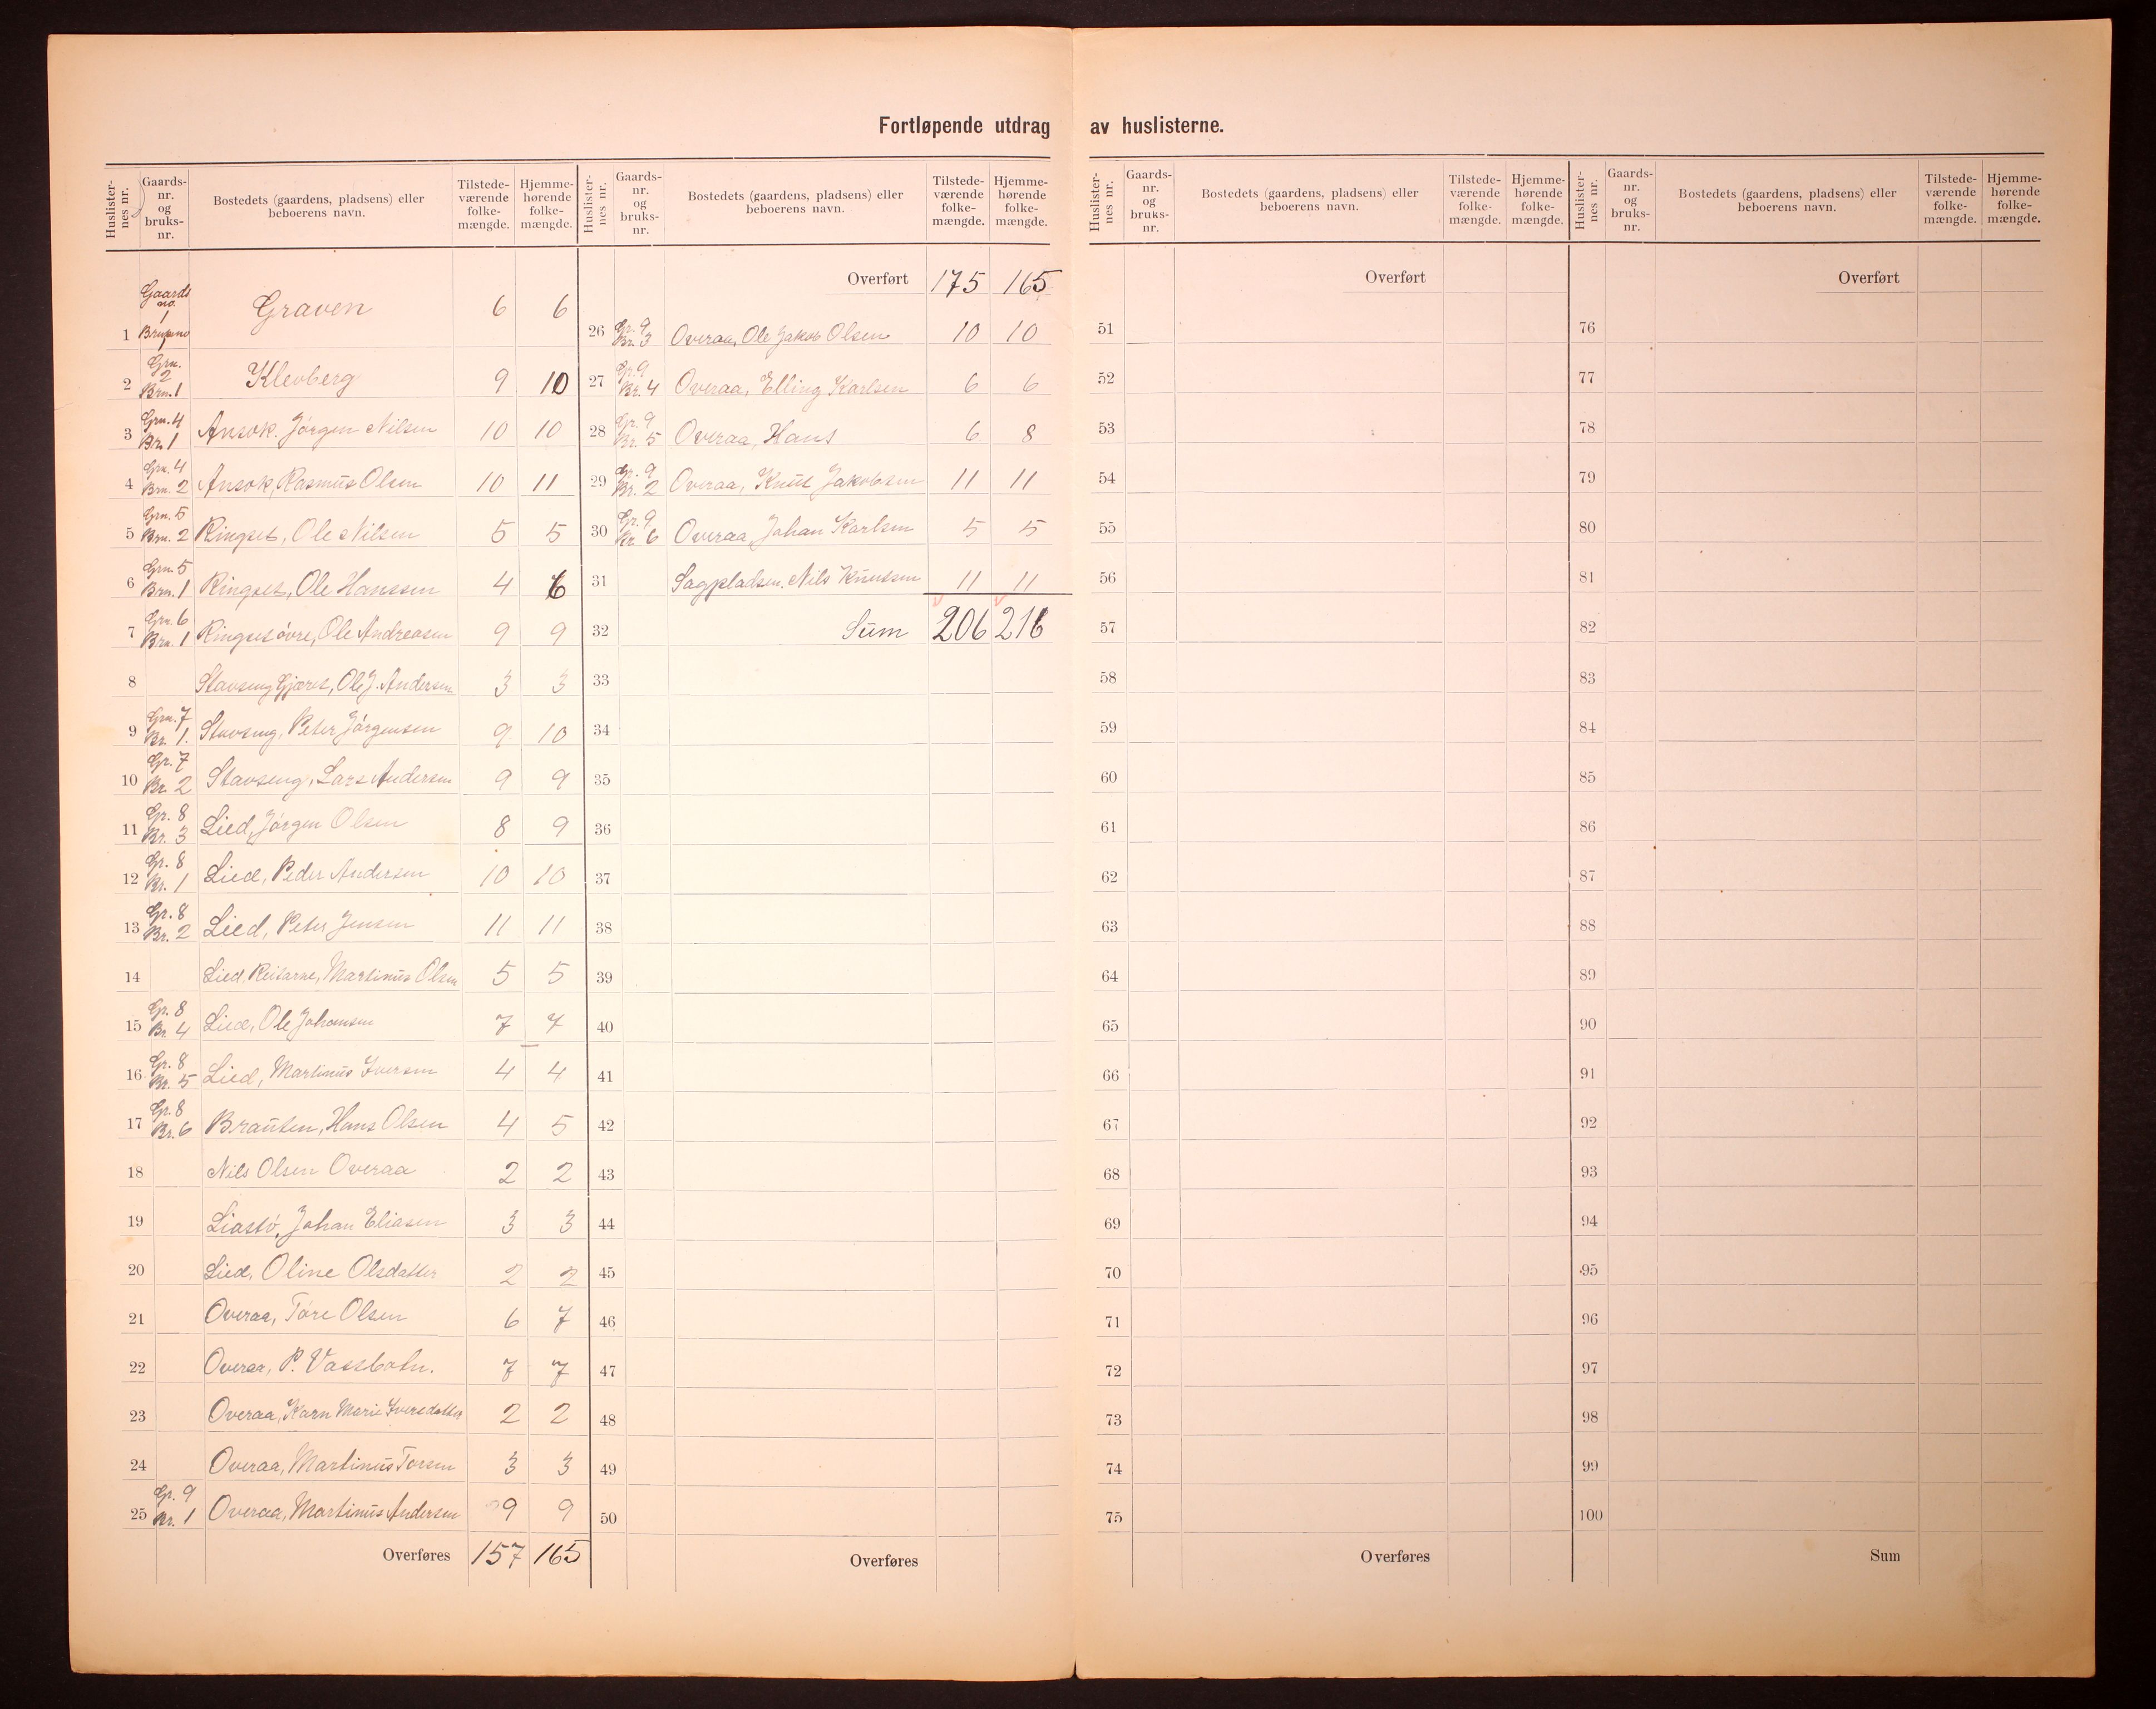 Fortløpende utdrag av huslisterne.
Huslister-nes nr. Gaards-nr. og bruks-nr. Bostedets (gaardens, pladsens) eller beboerens navn. Tilstede-værende folke-mængde. Hjemme-hørende folke-mængde.
1 Gaards no. 1 Bruksno 1 Graven 6 6
2 Grn. 2 Brn. 1 Klevberg 9 10
3 Grn. 4 Br. 1 Ansok. Jørgen Nilsen 10 10
4 Grn. 4 Brn. 2 Ansok, Rasmus Olsen 10 11
5 Grn. 5 Brn. 2 Ringset, Ole Nilsen 5 5
6 Grn 5 Brn. 1 Ringset, Ole Hanssen 4 6
7 Grn. 6 Brn. 1 Ringset øvre, Ole Andreasen 9 9
8 Stavseng Gjæret, Ole J. Andersen 3 3
9 Grn. 7 Br. 1. Stavseng, Peter Jørgensen 9 10
10 Gr. 7 Br. 2 Stavseng, Lars Andersen 9 9
11 Gr. 8 Br. 3 Lied, Jørgen Olsen 8 9
12 Gr. 8 Br. 1 Lied, Peder Andersen 10 10
13 Gr. 8 Br. 2 Lied, Peter Jensen 11 11
14 Lied, Reitarne, Martinus Olsen 5 5
15 Gr. 8 Br. 4 Lied, Ole Johansen 7 7
16 Gr. 8 Br. 5 Lied, Martinus Iversen 4 4
17 Gr. 8 Br. 6 Brauten, Hans Olsen 4 5
18 Nils Olsen Overaa 2 2
19 Liastø, Johan Eliasen 3 3
20 Lied, Oline Olsdatter 2 2
21 Overaa, Tore Olsen 6 7
22 Overaa, P. Vassbotn. 7 7
23 Overaa, Karn Marie Iversdatter 2 2
24 Overaa, Martinus Torsen 3 3
25 Gr. 9 Br. 1 Overaa, Martinus Andersen 9 9
Overføres 157 165
Huslister-nes nr. Gaards-nr. og bruks-nr. Bostedets (gaardens, pladsens) eller beboerens navn. Tilstede-værende folke-mængde. Hjemme-hørende folke-mængde.
Overført 175 165
26 Gr. 9 Br. 3 Overaa, Ole Jakob Olsen 10 10
27 Gr. 9 Br. 4 Overaa, Elling Karlsen 6 6
28 Gr. 9 Br. 5 Overaa, Hans 6 8
29 Gr. 9 Br. 2 Overaa, Knut Jakobsen 11 11
30 Gr. 9 Br. 6 Overaa, Johan Karlsen 5 5
31 Sagpladsen. Nils Knutsen 11 11
32 Sum 206 216
33
34
35
36
37
38
39
40
41
42
43
44
45
46
47
48
49
50
Overføres
Huslister-nes nr. Gaards-nr. og bruks-nr. Bostedets (gaardens, pladsens) eller beboerens navn. Tilstede-værende folke-mængde. Hjemme-hørende folke-mængde.
Overført
51
52
53
54
55
56
57
58
59
60
61
62
63
64
65
66
67
68
69
70
71
72
73
74
75
Overføres
Huslister-nes nr. Gaards-nr. og bruks-nr. Bostedets (gaardens, pladsens) eller beboerens navn. Tilstede-værende folke-mængde. Hjemme-hørende folke-mængde.
Overført
76
77
78
79
80
81
82
83
84
85
86
87
88
89
90
91
92
93
94
95
96
97
98
99
100
Sum